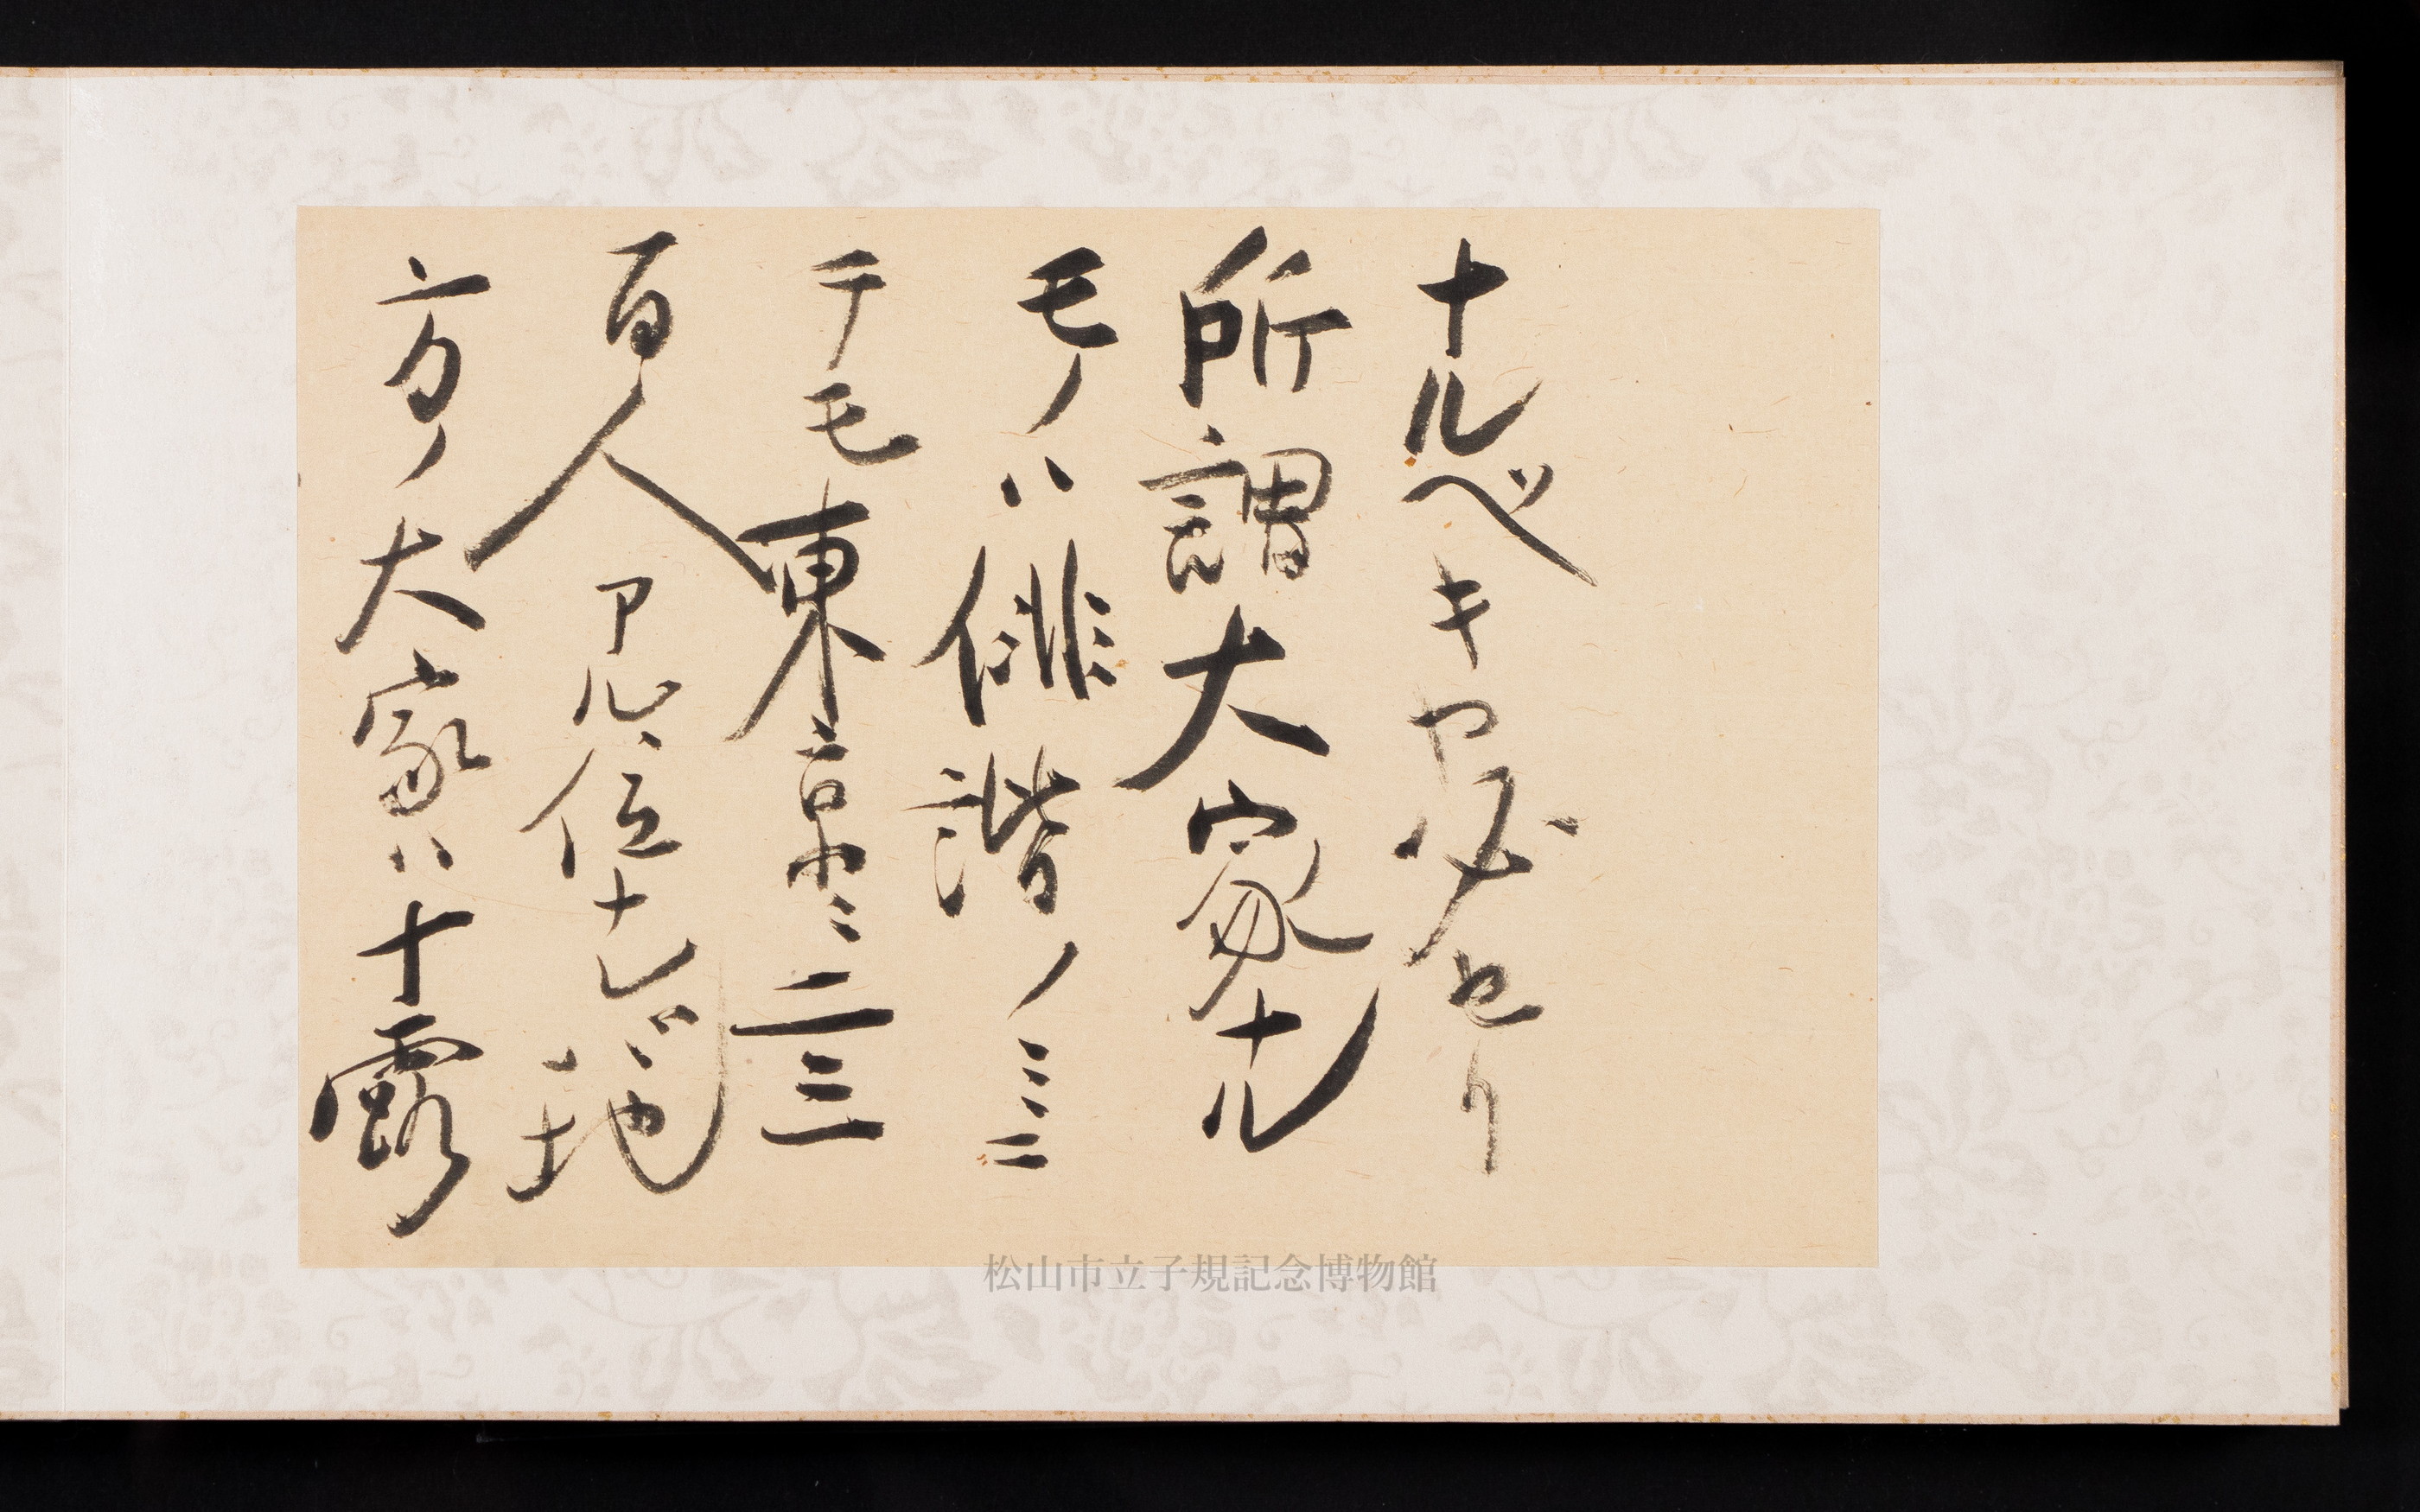 ナルベキヤ必せり
所謂大家ナル
モノハ俳諧ノミニ
テモ東京ニ二三
百人アル位ナレバ地
方ノ大家ハ十露
松山市立子規記念博物館